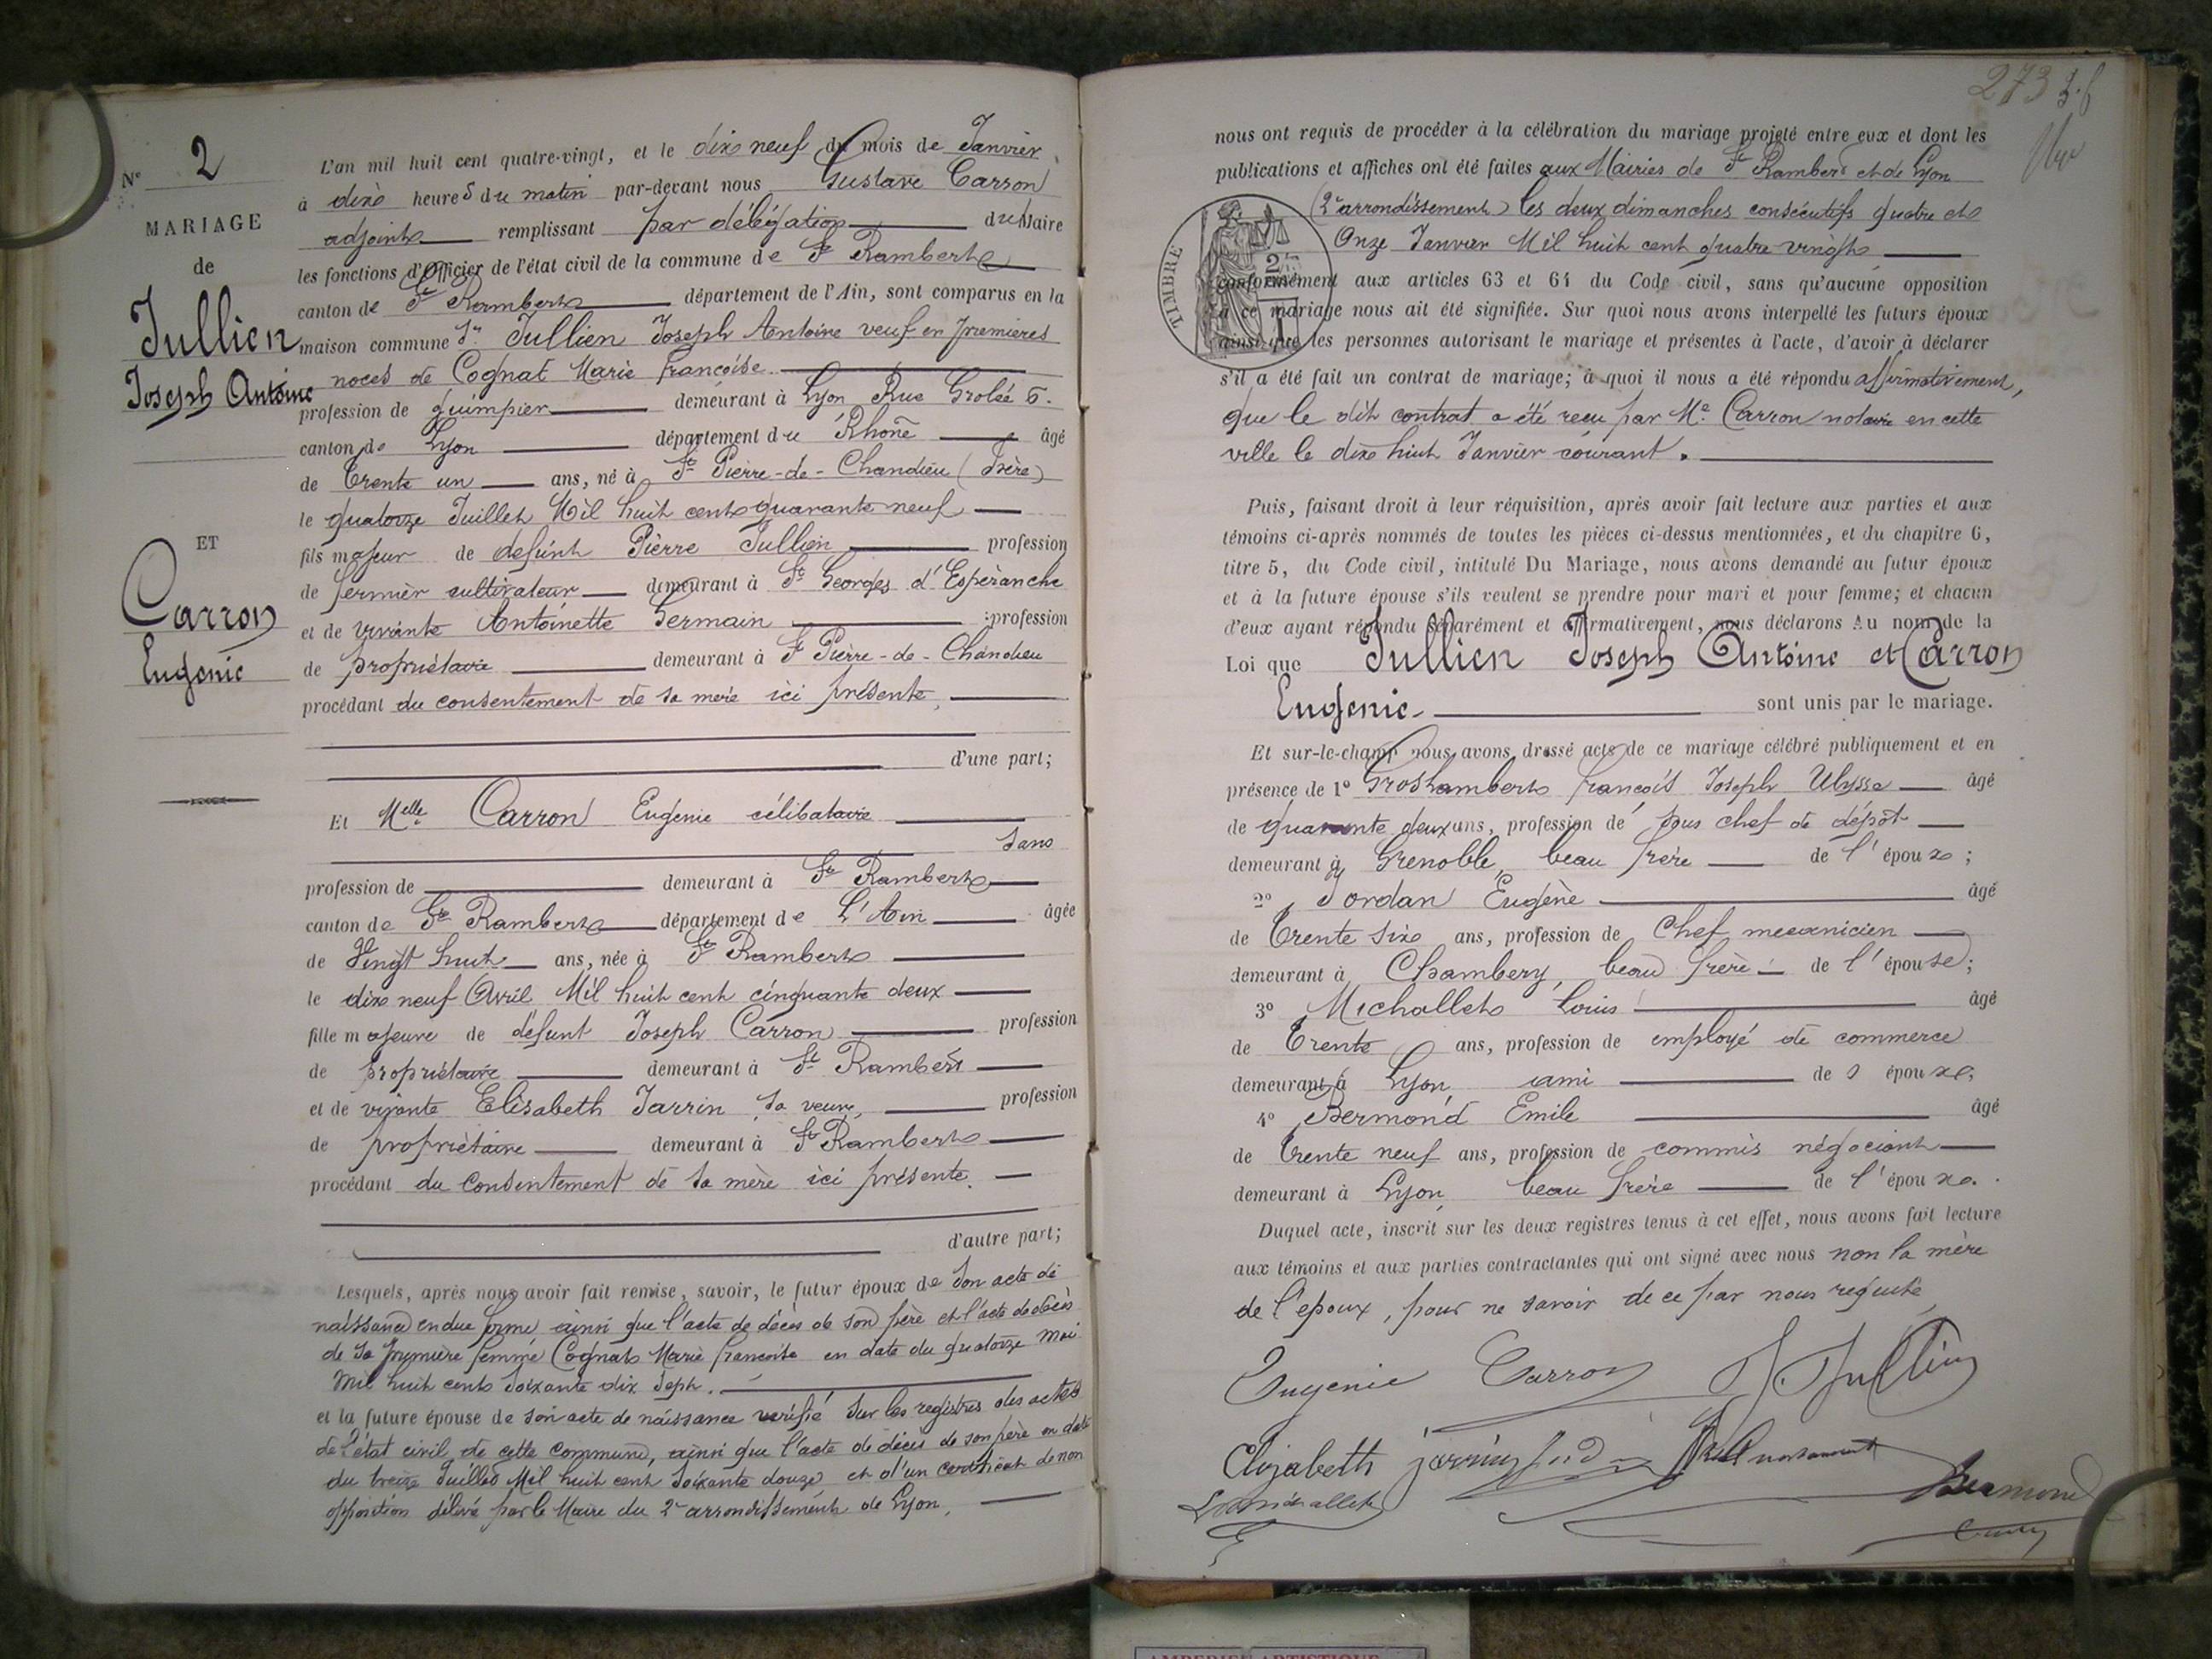 N° 2
MARIAGE
de
Jullien
Joseph Antoine
ET
Carron
Eugenie
L'an mil huit cent quatre-vingt, et le dix neuf du mois de Janvier
à dix heures du matin par-devant nous Gustave Carron
adjoint remplissant par délégation du Maire
les fonctions d'Officier de l'état civil de la commune de St Rambert
canton de St Rambert département de l'Ain, sont comparus en la
maison commune Sr Jullien Joseph Antoine veuf en premieres
noces de Cognat Marie françoise
profession de guimpier demeurant à Lyon Rue Grolée 6.
canton de Lyon département du Rhône âgé
de trente un ans, né à St Pierre-de-Chandieu (Isère)
le quatorze Juillet Mil huit cent quarante neuf
fils majeur de defunt Pierre Jullien profession
de fermier cultivateur demeurant à St Georges d'Espéranche
et de vivante Antoinette Germain profession
de propriétaire demeurant à St Pierre-de-Chandieu
procédant du consentement de sa mere ici présente,
d'une part;
Et Melle Carron Eugenie célibataire
Sans
profession de demeurant à St Rambert
canton de St Rambert département de L'Ain âgée
de Vingt huit ans, née à St Rambert
le dix neuf Avril Mil huit cent cinquante deux
fille majeure de défunt Joseph Carron profession
de propriétaire demeurant à St Rambert
et de vivante Elisabeth Jarrin sa veuve, profession
de propriétaire demeurant à St Rambert
procédant du consentement de sa mère ici présente.
d'autre part;
Lesquels, après nous avoir fait remise, savoir, le futur époux de son acte de
naissance en due forme, ainsi que l'acte de décès de son père et l'acte de décès
de sa première femme Cognat Marie francoise en date du quatorze Mai
Mil huit cent soixante dix sept.
et la future épouse de son acte de naissance verifié sur les registres des actes
de l'état civil de cette commune, ainsi que l'acte de décès de son père en date
du treize Juillet Mil huit cent soixante douze et d'un certificat de non
opposition délivé par le Maire du 2e arrondissement de Lyon.
273
nous ont requis de procéder à la célébration du mariage projeté entre eux et dont les
publications et affiches ont été faites aux Mairies de St Rambert et de Lyon
(2e arrondissement) les deux dimanches consécutifs quatre et
Onze Janvier Mil huit cent quatre vingt
TIMBRE
conformément aux articles 63 et 64 du Code civil, sans qu'aucune opposition
à ce mariage nous ait été signifiée. Sur quoi nous avons interpellé les futurs époux
ainsi que les personnes autorisant le mariage et présentes à l'acte, d'avoir à déclarer
s'il a été fait un contrat de mariage; à quoi il nous a été répondu affirmativement,
que le dit contrat a été reçu par Me. Carron notaire en cette
ville le dix huit Janvier courant.
Puis, faisant droit à leur réquisition, après avoir fait lecture aux parties et aux
témoins ci-après nommés de toutes les pièces ci-dessus mentionnées, et du chapitre 6,
titre 5, du Code civil, intitulé Du Mariage, nous avons demandé au futur époux
et à la future épouse s'ils veulent se prendre pour mari et pour femme; et chacun
d'eux ayant répondu séparément et affirmativement, nous déclarons Au nom de la
Loi que Jullien Joseph Antoine et Carron
Eugenie sont unis par le mariage.
Et sur-le-champ nous avons dressé acte de ce mariage célébré publiquement et en
présence de 1° Groslambert françois Joseph Ulysse âgé
de quarante deux ans, profession de sous chef de dépôt
demeurant à Grenoble, beau frère de l'époux;
2° Jordan Eugène âgé
de trente six ans, profession de Chef mecanicien
demeurant à Chambery, beau frère de l'épouse;
3° Michallet Louis âgé
de trente ans, profession de employé de commerce
demeurant à Lyon, ami de l'époux;
4° Bermond Emile âgé
de trente neuf ans, profession de commis négociant
demeurant à Lyon, beau frère de l'époux.
Duquel acte, inscrit sur les deux registres tenus à cet effet, nous avons fait lecture
aux témoins et aux parties contractantes qui ont signé avec nous non la mère
de l'epoux, pour ne savoir de ce par nous requise
Eugenie Carron J. Jullien
Elizabeth jarrin
Bermond
AMBERIEU ARTISTIQUE